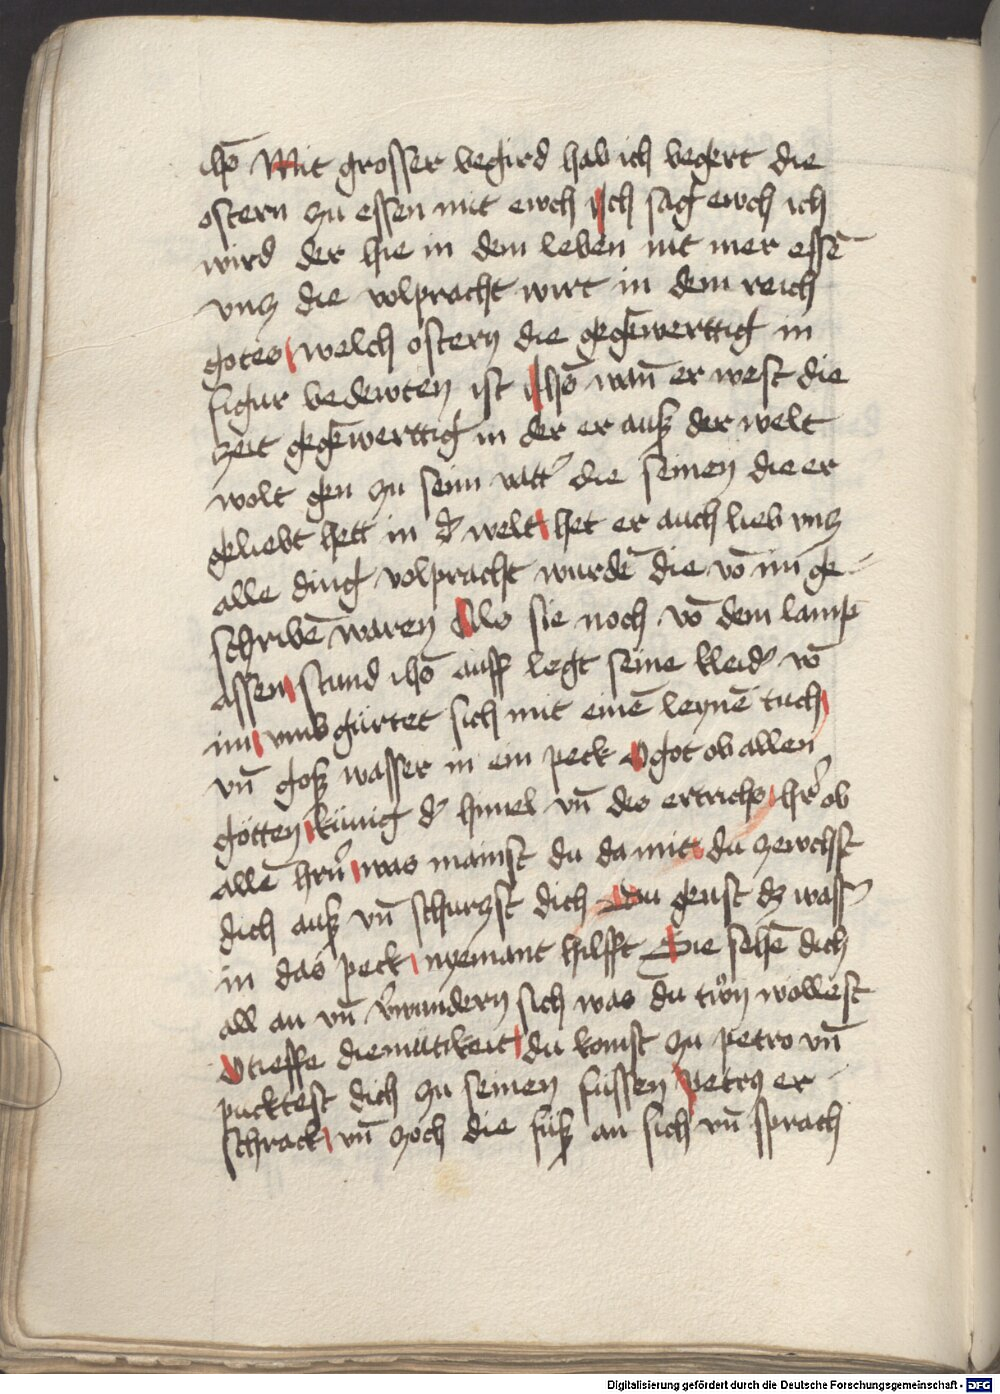 ihō Mit grosser begird hab ich begert die
ostern zu essen mit ewch ich sag ewch ich
wird der hie in dem leben nit mer essē
vnz die volpracht wirt in dem reich
gotes welch ostern die gegēwerttig in
figur bedewten ist ihō wan̄ er west die
zeit gegēwerttig in der er auß der welt
wolt gen zu seim vatt' die seinen die er
geliebt hett in d' welt het er auch lieb vnz
alle ding volpracht wurdē die vō im ge
schribē waren Als sie noch vō dem lamp
assen stund ihō auff legt seine kleid' vō
im vmb gürtet sich mit einē leynē tuch
vn̄ goß wasser in ein peck O got ob allen
götten künig d' himel vn̄ des ertrichs hr̄ ob
allē hrn̄ was mainst du da mit du zewchst
dich auß vn̄ schurzst dich du geust dz wass'
in das peck nyemant hilfft Sie sehē dich
all an vn̄ v'wundern sich was du tun wollest
O tieffe diemütikeit du komst zu petro vn̄
pucktest dich zu seinen füssen petrus er
schrack vn̄ zoch die füß an sich vn̄ sprach
Digitalisierung gefördert durch die Deutsche Forschungsgemeinschaft - DFG